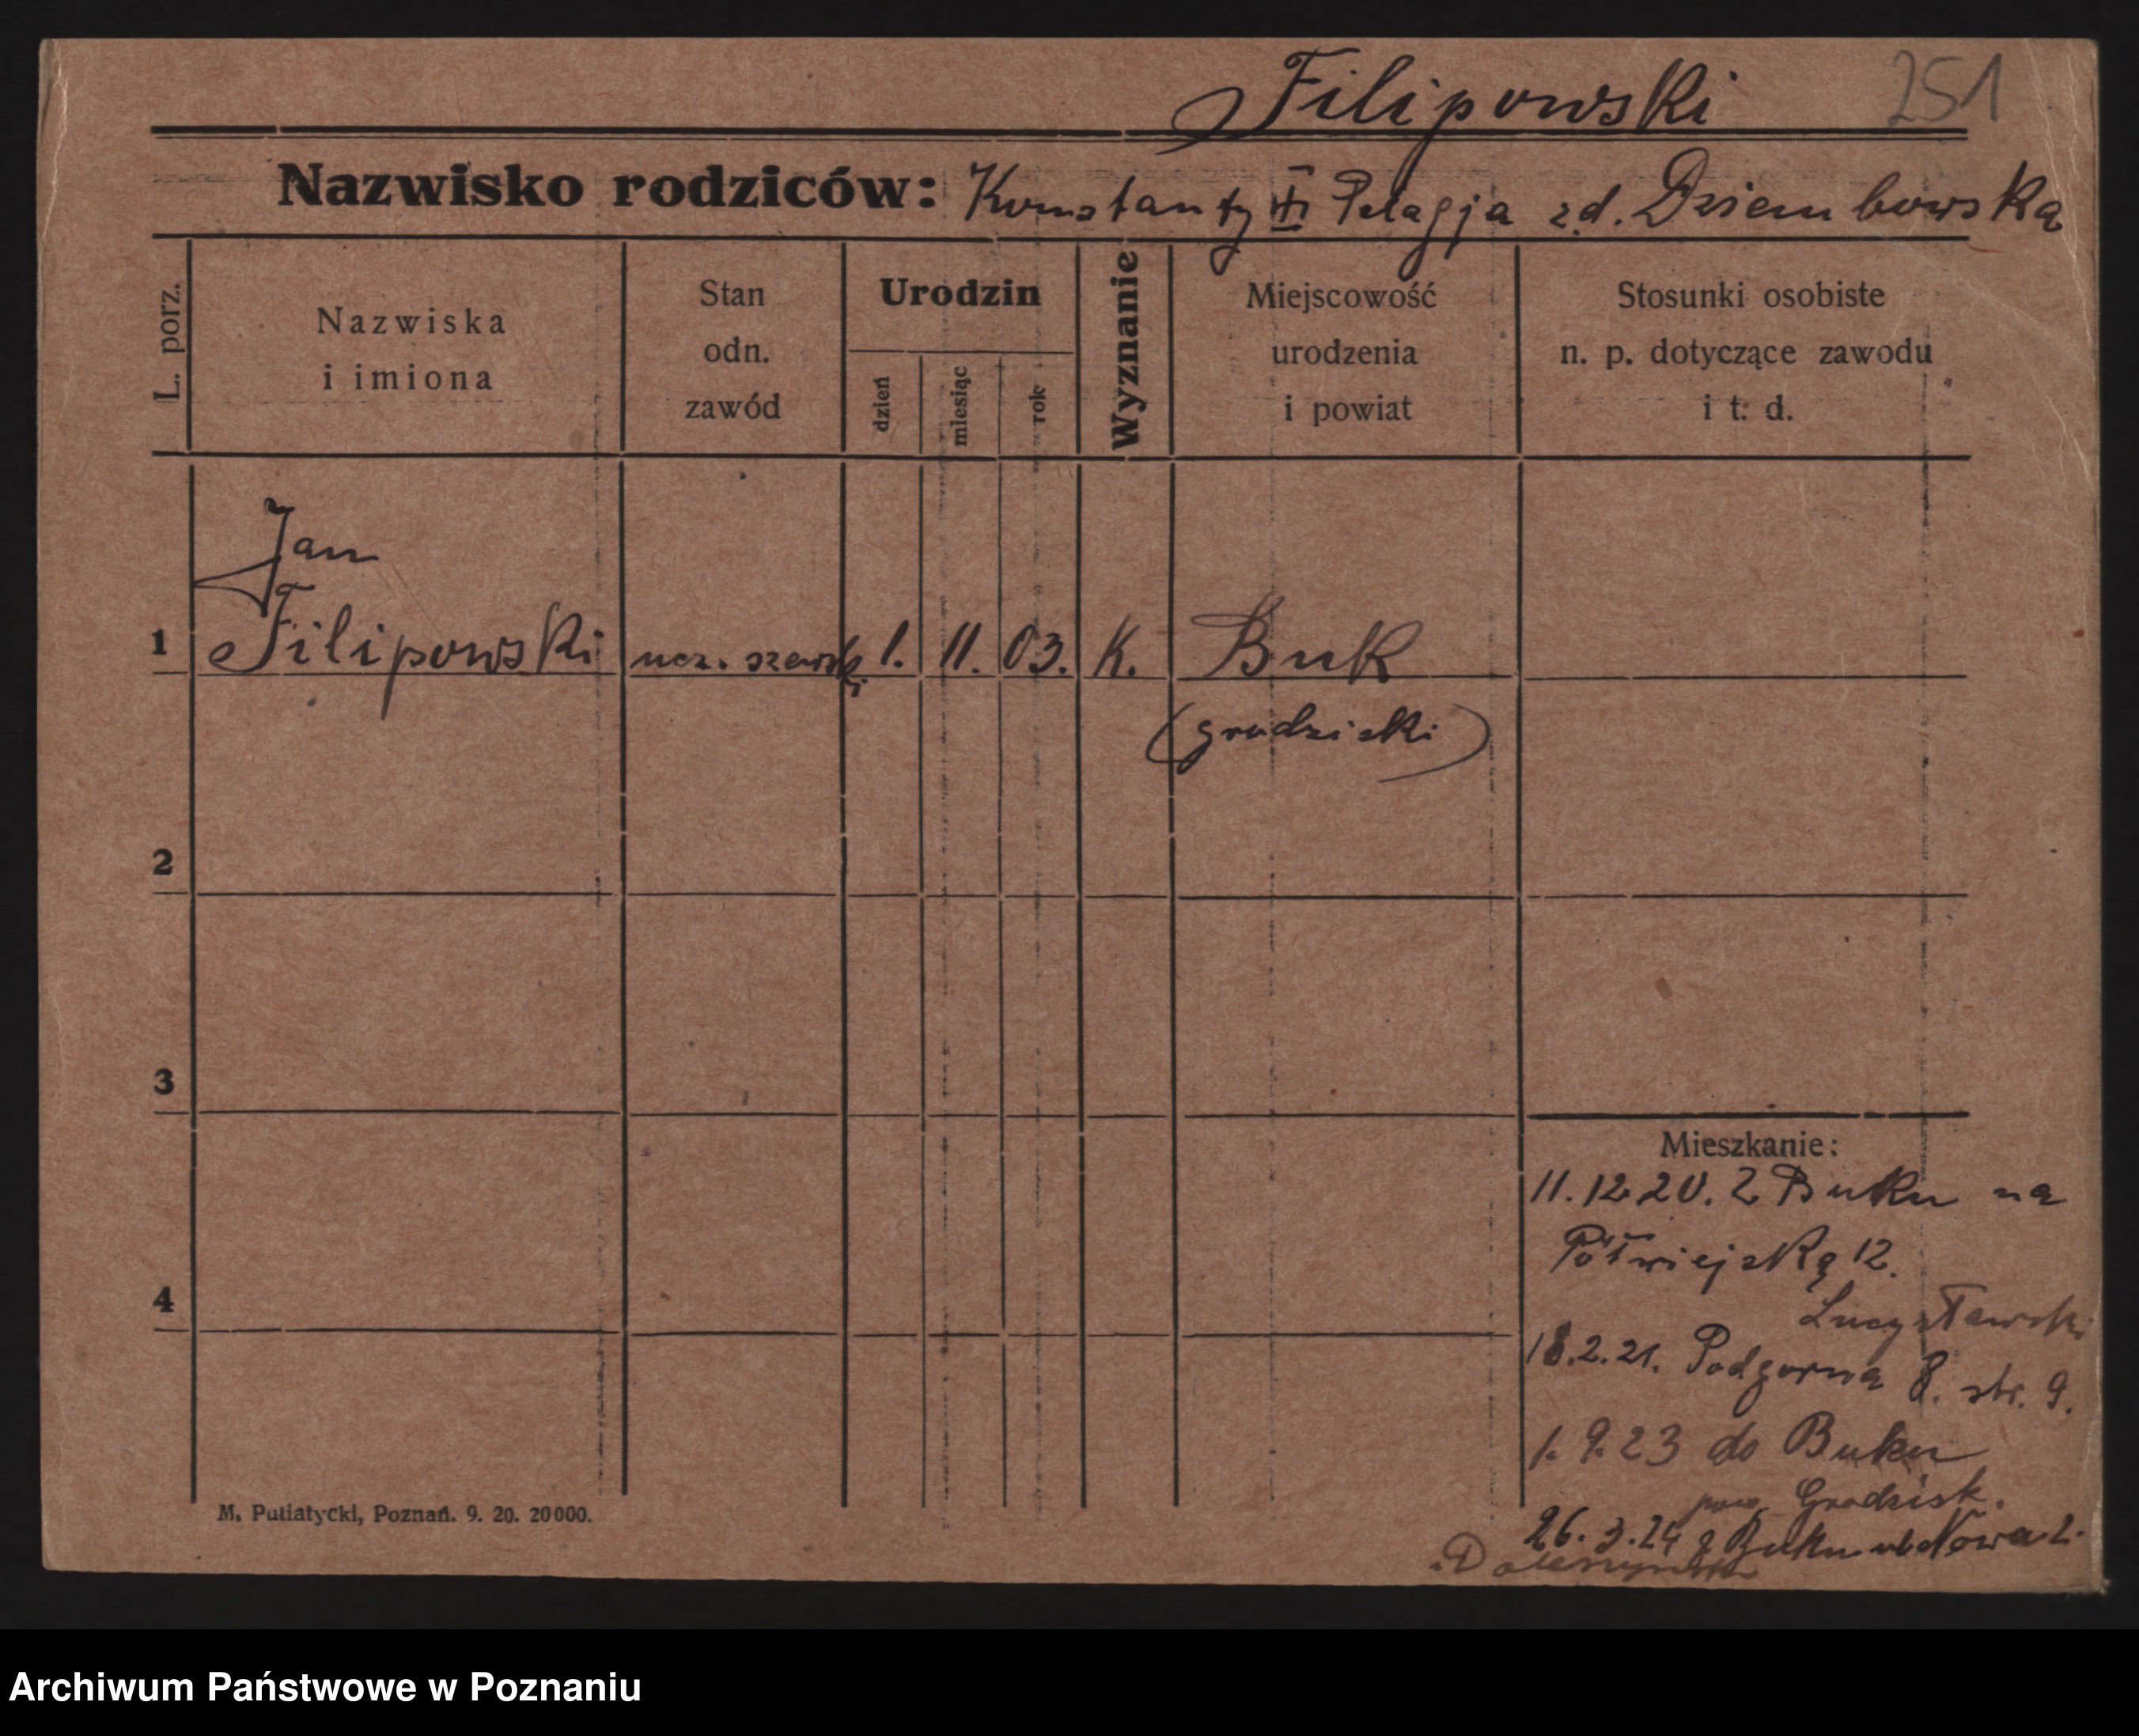 Filipowski 251
Nazwisko rodziców: Konstanty i Pelagja z d. Dziembowska
L. porz.
Nazwiska
i imiona
Stan
odn.
zawód
Urodzin
dzień
miesiąc
rok
Wyznanie
Miejscowość
urodzenia
i powiat
Stosunki osobiste
n. p. dotyczące zawodu
i t. d.
Jan
1 Filipowski ucz. szewski 1. 11. 03. K. Buk
(grodziski)
2
3
4
Mieszkanie:
11.12.20. z Buku na
Półwiejską 12.
18.2.21. Podgorna 8. str. 9.
1.9.23 do Buku
pow. Grodzisk.
26.3.24 z Buku ul Nowa 2.
M. Putiatycki, Poznań. 9. 20. 20000.
Archiwum Państwowe w Poznaniu